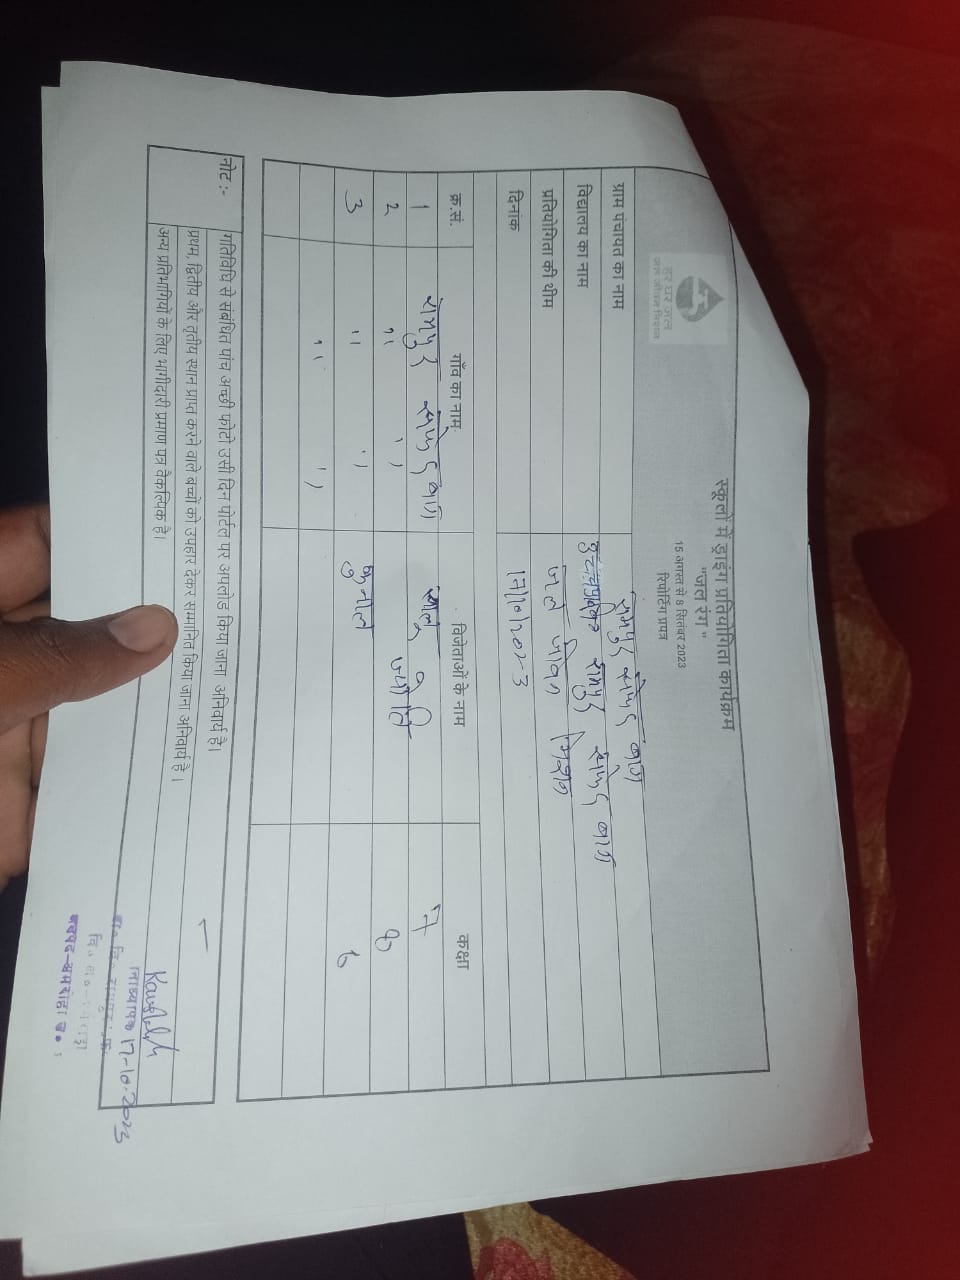 हर घर जल
जल जीवन मिशन
स्कूलों में ड्राइंग प्रतियोगिता कार्यक्रम
"जल रंग"
15 अगस्त से 8 सितंबर 2023
रिपोर्टिंग प्रपत्र
ग्राम पंचायत का नाम रामपुर
विद्यालय का नाम रामपुर
प्रतियोगिता की थीम जल जीवन मिशन
दिनांक 17/10/2023
क्र.सं. गाँव का नाम विजेताओं के नाम कक्षा
1 रामपुर 7
2 " " ज्योति 8
3 " " कुनाल 6
" "
नोट:- गतिविधि से संबंधित पांच अच्छी फोटो उसी दिन पोर्टल पर अपलोड किया जाना अनिवार्य है।
प्रथम, द्वितीय और तृतीय स्थान प्राप्त करने वाले बच्चों को उपहार देकर सम्मानित किया जाना अनिवार्य है।
अन्य प्रतिभागियों के लिए भागीदारी प्रमाण पत्र वैकल्पिक है।
17-10-2023
जनपद-अमरोहा